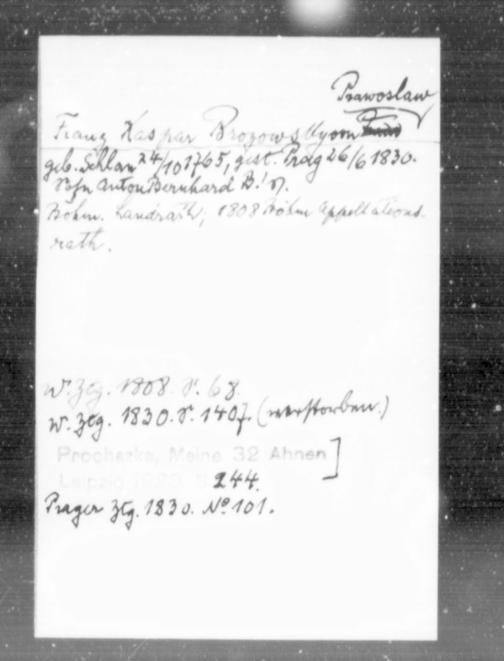 Prawoslaw
Franz Kaspar Brozowsky von
geb. Schlan 24/10 1765, gest. Prag 26/6 1830.
Sohn Anton Bernhard B.'s.
Böhm. Landrath; 1808 Böhm Appellations-
rath.
W. Ztg. 1808. S. 68.
W. Ztg. 1830. S. 1407. (verstorben.)
Prochazka, Meine 32 Ahnen ]
Leipzig 1928. S. 244.
Prager Ztg. 1830. No 101.